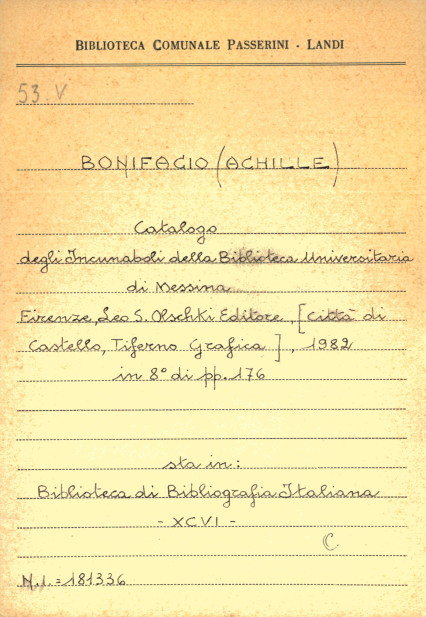 BIBLIOTECA COMUNALE PASSERINI - LANDI
53 V
BONIFACIO (ACHILLE)
Catalogo
degli Incunaboli della Biblioteca Universitaria
di Messina
Firenze, Leo S. Olschki Editore, [Città di
Castello, Tiferno Grafica], 1982
in 8° di pp. 176
sta in:
Biblioteca di Bibliografia Italiana
- XCVI -
C
N.I. = 181336